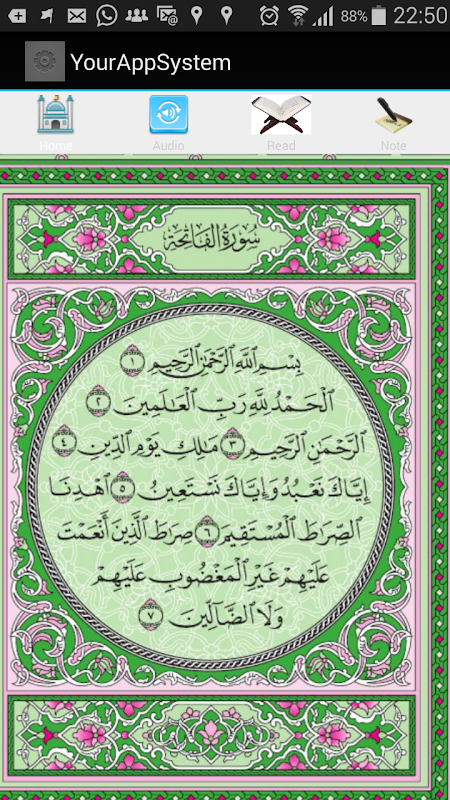 88% 22:50
YourAppSystem
Home Audio Read Note
سُورَةُ الْفَاتِحَةِ
بِسْمِ اللَّهِ الرَّحْمَٰنِ الرَّحِيمِ ١
الْحَمْدُ لِلَّهِ رَبِّ الْعَالَمِينَ ٢
الرَّحْمَٰنِ الرَّحِيمِ ٣ مَالِكِ يَوْمِ الدِّينِ ٤
إِيَّاكَ نَعْبُدُ وَإِيَّاكَ نَسْتَعِينُ ٥ اهْدِنَا
الصِّرَاطَ الْمُسْتَقِيمَ ٦ صِرَاطَ الَّذِينَ أَنْعَمْتَ
عَلَيْهِمْ غَيْرِ الْمَغْضُوبِ عَلَيْهِمْ
وَلَا الضَّالِّينَ ٧